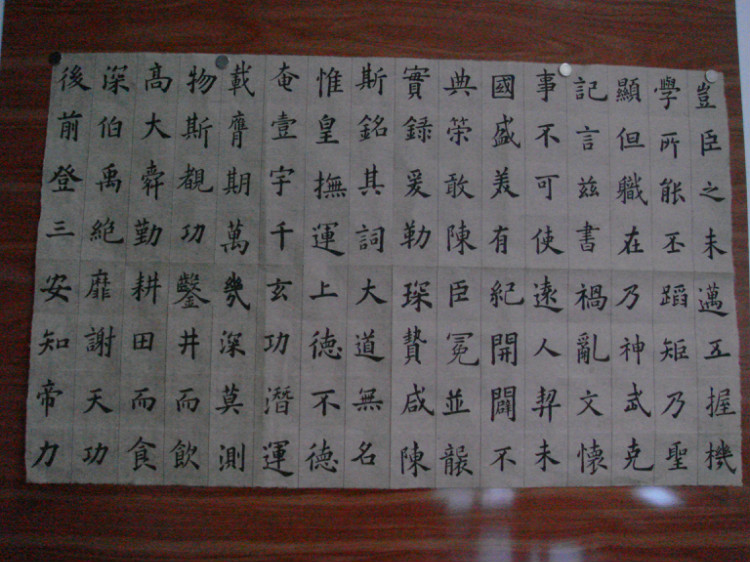 豈臣之末邁五握機
學所能丕蹈矩乃聖
顯但職在乃神武克
記言茲書禍亂文懷
事不可使遠人契未
國盛美有紀開闢不
典荣敢陳臣冕並襲
實録爰勒琛贄咸陳
斯銘其詞大道無名
惟皇撫運上德不德
奄壹宇千玄功潛運
載膺期萬幾深莫測
物斯觀功鑿井而飲
高大舜勤耕田而食
深伯禹絶靡謝天功
後前登三安知帝力